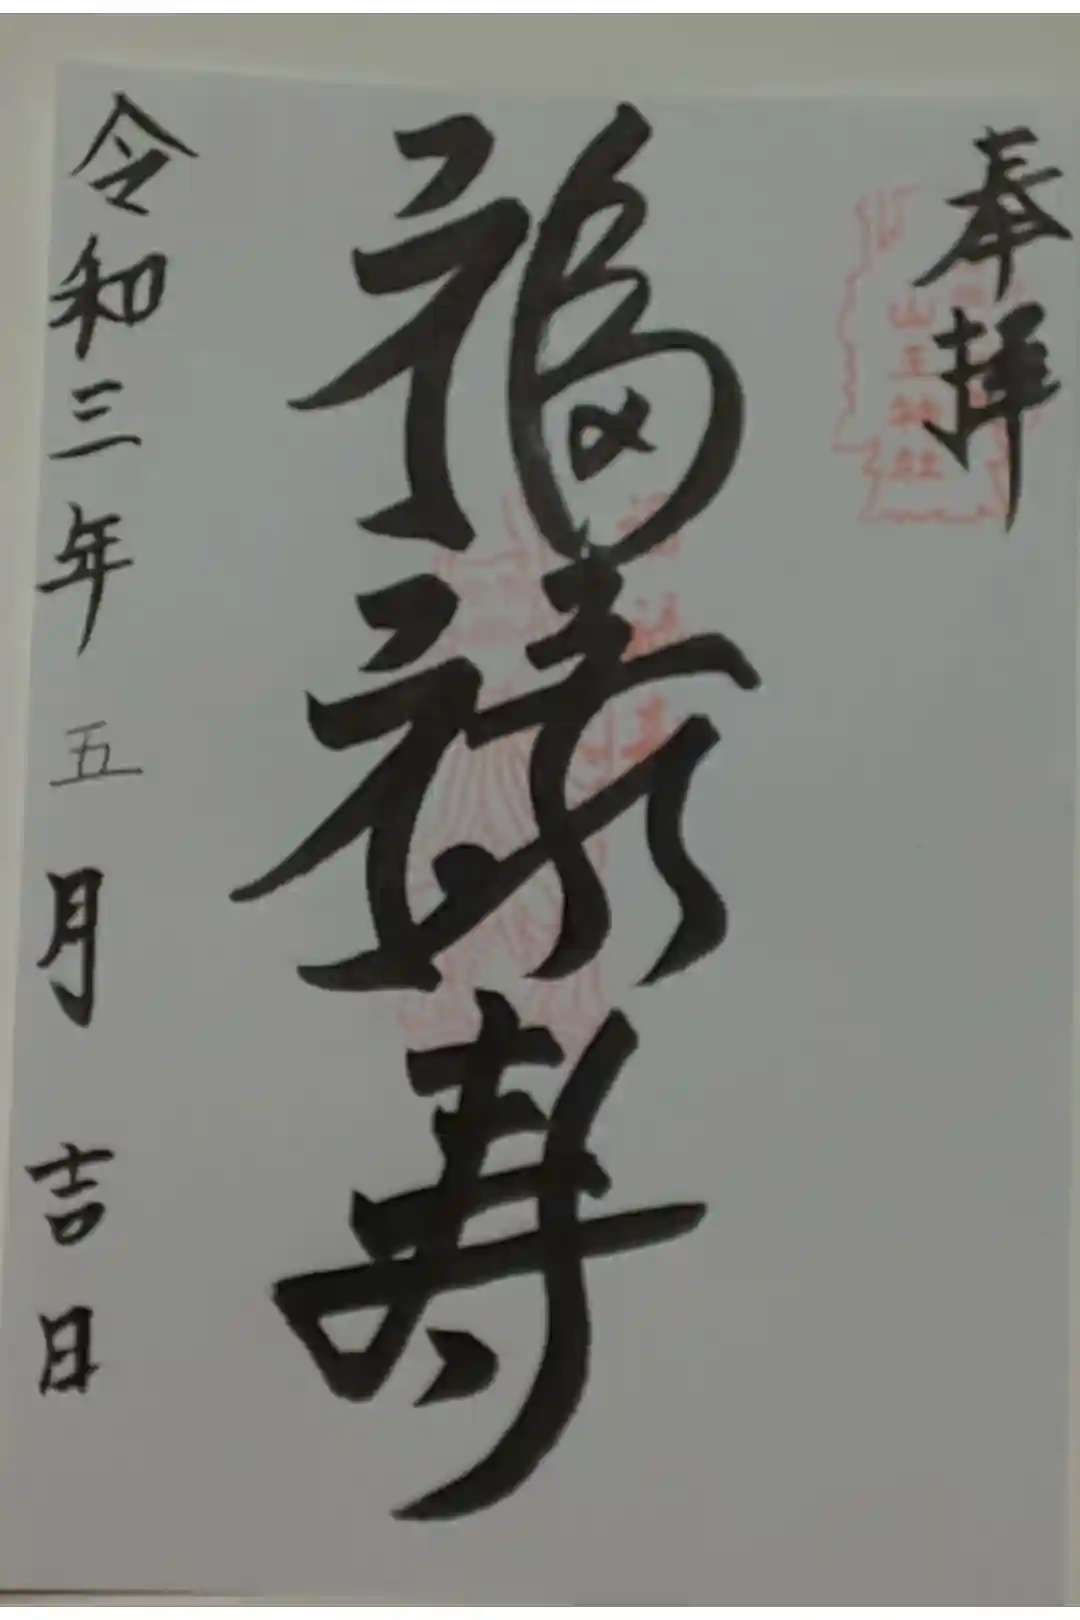 奉拝
山王神社
福禄寿
令和三年五月吉日